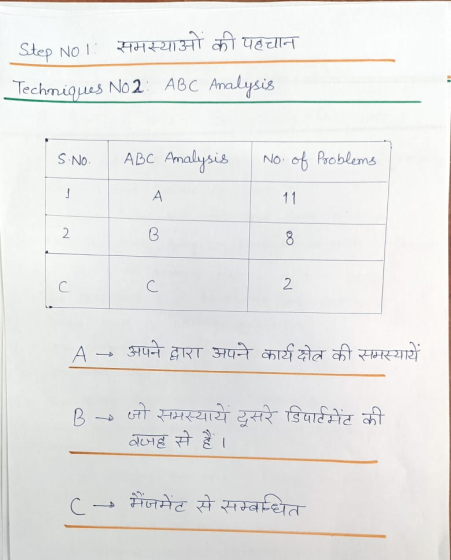 Step NO 1: समस्याओं की पहचान
Techniques NO2: ABC Analysis
S.No. ABC Analysis No. of Problems
1 A 11
2 B 8
C C 2
A → अपने द्वारा अपने कार्य क्षेत्र की समस्यायें
B → जो समस्यायें दूसरे डिपार्टमेंट की
वजह से हैं ।
C → मैंजमेंट से सम्बन्धित